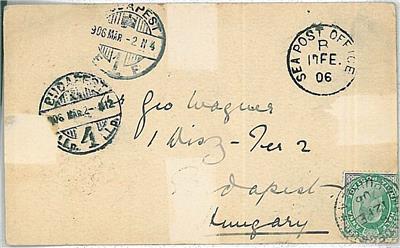 BUDAPEST
906 MÁR -2 N 4
SEA POST OFFICE
B
17 FE.
06
BUDAPEST
906 MÁR 2
4
Geo Wagner
1 Disz-Ter 2
dapest
Hungary